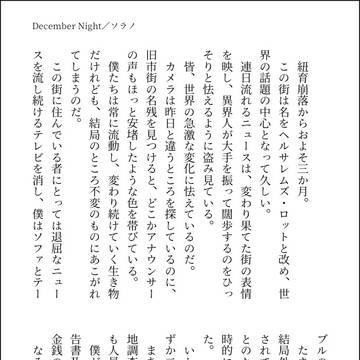 December Night／ソラノ
紐育崩落からおよそ三か月。
この街は名をヘルサレムズ・ロットと改め、世
界の話題の中心となって久しい。
連日流れるニュースは、変わり果てた街の表情
を映し、異界人が大手を振って闊歩するのをひっ
そりと怯えるように盗み見ている。
皆、世界の急激な変化に怯えているのだ。
カメラは昨日と違うところを探しているのに、
旧市街の名残を見つけると、どこかアナウンサー
の声もほっと安堵したような色を帯びている。
僕たちは常に流動し、変わり続けていく生き物
だけれども、結局のところ不変のものにあこがれ
てしまうのだ。
この街に住んでいる者にとっては退屈なニュー
スを流し続けるテレビを消し、僕はソファとテー
ブルの
結局外
されて
時的に
た。
地調査
も人員
僕が
金銭の